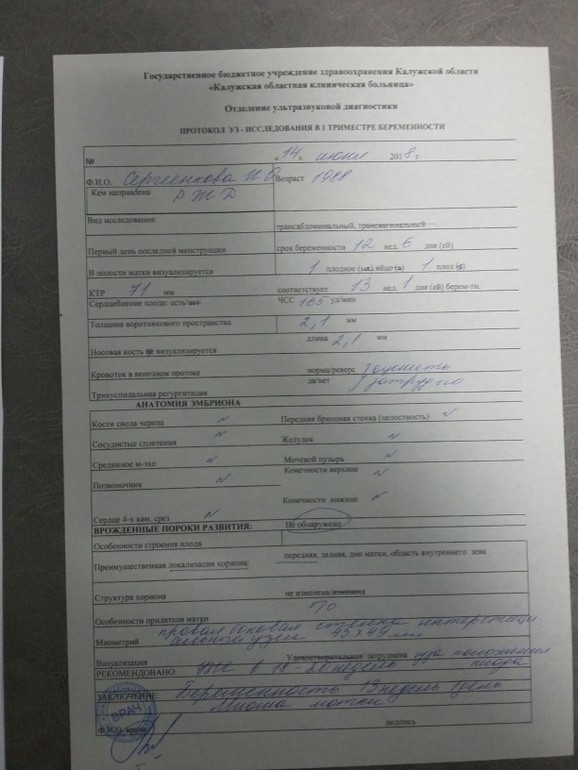 Государственное бюджетное учреждение здравоохранения Калужской области
«Калужская областная клиническая больница»
Отделение ультразвуковой диагностики
ПРОТОКОЛ УЗ - ИССЛЕДОВАНИЯ В I ТРИМЕСТРЕ БЕРЕМЕННОСТИ
№ «14» июня 2018 г.
Ф.И.О. Возраст 1988
Кем направлена РЖД
Вид исследования: трансабдоминальный, трансвагинальный
Первый день последней менструации срок беременности 12 нед. 6 дня (ей)
В полости матки визуализируется 1 плодное (ых) яйцо(а) 1 плод (а)
КТР 71 мм соответствует 13 нед. 1 дня (ей) берем-ти.
Сердцебиение плода: есть/нет ЧСС 165 уд/мин
Толщина воротникового пространства 2,1 мм
Носовая кость не визуализируется длина 2,1 мм
Кровоток в венозном протоке норма/реверс оценить
Трикуспидальная регургитация да/нет затрудно
АНАТОМИЯ ЭМБРИОНА
Кости свода черепа N Передняя брюшная стенка (целостность) N
Сосудистые сплетения N Желудок N
Срединное м-эхо N Мочевой пузырь N
Позвоночник N Конечности верхние N
Конечности нижние N
Сердце 4-х кам. срез N
ВРОЖДЕННЫЕ ПОРОКИ РАЗВИТИЯ: Не обнаружено
Особенности строения плода
Преимущественная локализация хориона: передняя, задняя, дно матки, область внутреннего зева
Структура хориона не изменена/изменена
Особенности придатков матки
правая боковая стенка
Миометрий узел 45х49 мм
Визуализация Удовлетворительная затруднена из-за положения
РЕКОМЕНДОВАНО: УЗИ в 18-20 недель плода
ЗАКЛЮЧЕНИЕ: Беременность 13 недель 1 день
Миома матки
ВРАЧ
Ф.И.О. врача подпись